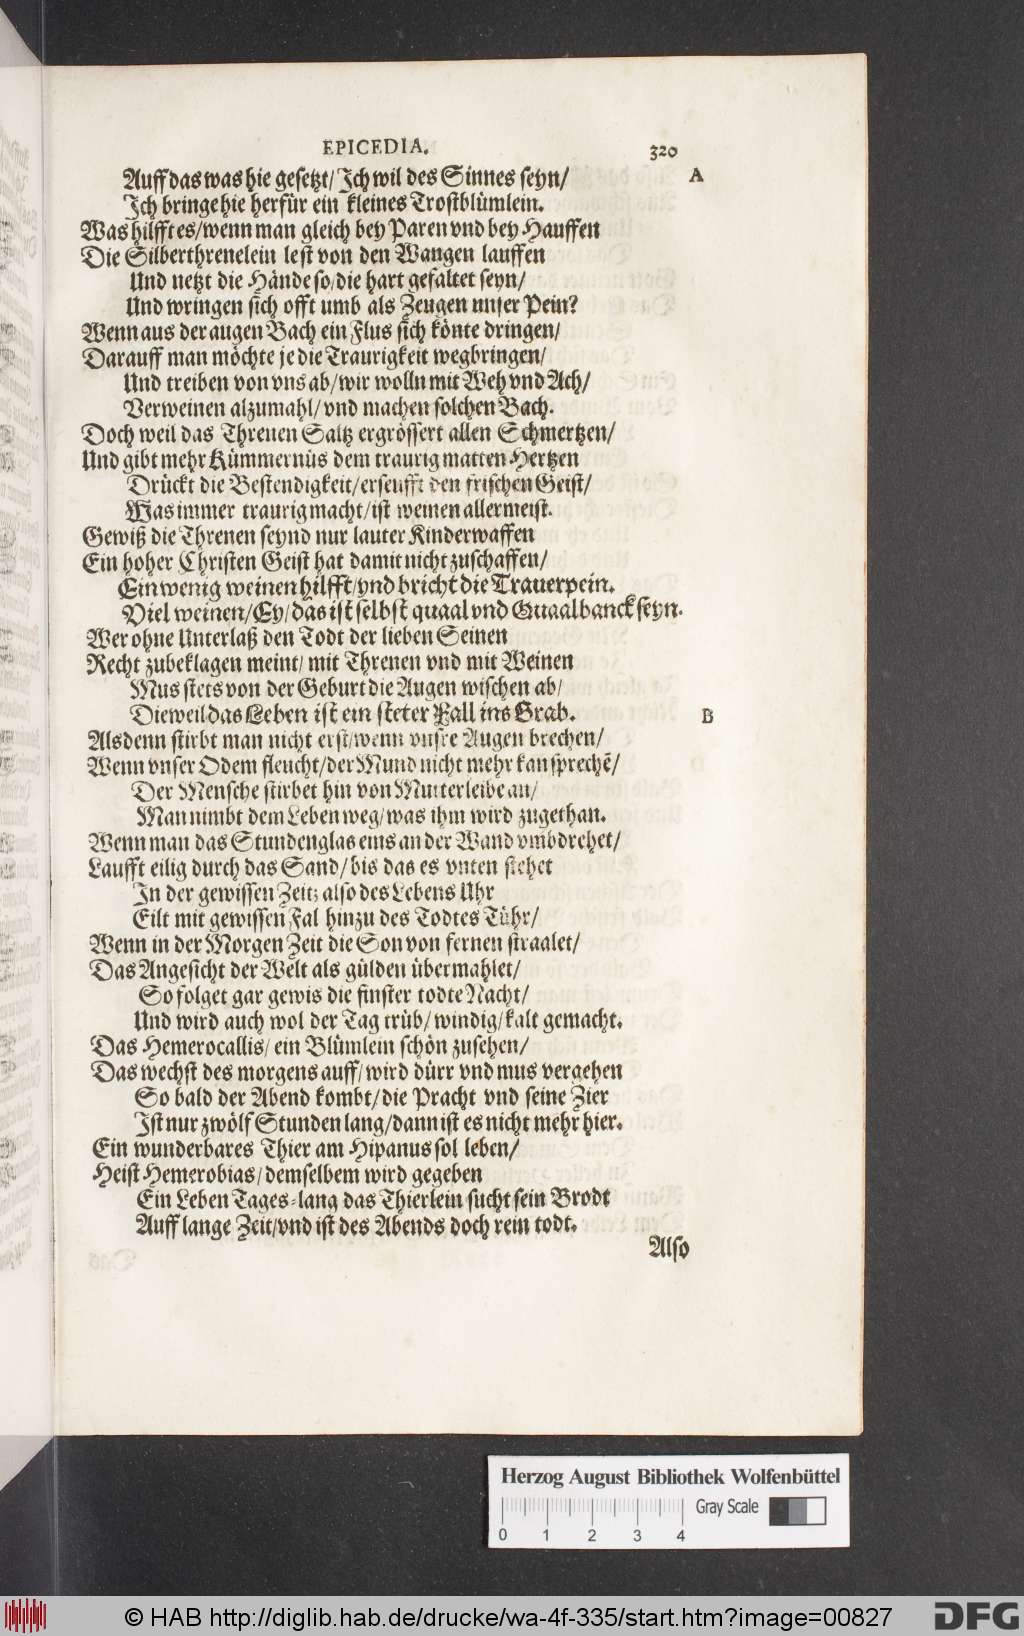 EPICEDIA. 320
Auff das was hie gesetzt/ Ich wil des Sinnes seyn/ A
Ich bringe hie herfür ein kleines Trostblümlein.
Was hilfft es/ wenn man gleich bey Paren vnd bey Hauffen
Die Silberthrenelein lest von den Wangen lauffen
Und netzt die Hände so/ die hart gefaltet seyn/
Und wringen sich offt umb als Zeugen unser Pein?
Wenn aus der augen Bach ein Flus sich könte dringen/
Darauff man möchte je die Traurigkeit wegbringen/
Und treiben von vns ab/ wir wolln mit Weh vnd Ach/
Verweinen alzumahl/ vnd machen solchen Bach.
Doch weil das Threnen Saltz ergrössert allen Schmertzen/
Und gibt mehr Kümmernüs dem traurig matten Hertzen
Drückt die Bestendigkeit/ erseufft den frischen Geist/
Was immer traurig macht/ ist weinen allermeist.
Gewiß die Threnen seynd nur lauter Kinderwaffen
Ein hoher Christen Geist hat damit nicht zuschaffen/
Ein wenig weinen hilfft/ vnd bricht die Trauerpein.
Viel weinen/ Ey/ das ist selbst quaal vnd Quaalbanck seyn.
Wer ohne Unterlaß den Todt der lieben Seinen
Recht zubeklagen meint/ mit Threnen vnd mit Weinen
Mus stets von der Geburt die Augen wischen ab/
Dieweil das Leben ist ein steter Fall ins Grab. B
Alsdenn stirbt man nicht erst/ wenn vnsre Augen brechen/
Wenn vnser Odem fleucht/ der Mund nicht mehr kan sprechẽ/
Der Mensche stirbet hin von Mutterleibe an/
Man nimbt dem Leben weg/ was ihm wird zugethan.
Wenn man das Stundenglas eins an der Wand vmbdrehet/
Laufft eilig durch das Sand/ bis das es vnten stehet
In der gewissen Zeit; also des Lebens Uhr
Eilt mit gewissen Fal hinzu des Todtes Tühr/
Wenn in der Morgen Zeit die Son von fernen straalet/
Das Angesicht der Welt als gülden übermahlet/
So folget gar gewis die finster todte Nacht/
Und wird auch wol der Tag trüb/ windig/ kalt gemacht.
Das Hemerocallis/ ein Blümlein schön zusehen/
Das wechst des morgens auff/ wird dürr vnd mus vergehen
So bald der Abend kombt/ die Pracht vnd seine Zier
Ist nur zwölf Stunden lang/ dann ist es nicht mehr hier.
Ein wunderbares Thier am Hipanus sol leben/
Heist Hemerobias/ demselbem wird gegeben
Ein Leben Tages-lang das Thierlein sucht sein Brodt
Auff lange Zeit/ vnd ist des Abends doch rein todt.
Also
Herzog August Bibliothek Wolfenbüttel
Gray Scale
0 1 2 3 4
© HAB http://diglib.hab.de/drucke/wa-4f-335/start.htm?image=00827
DFG